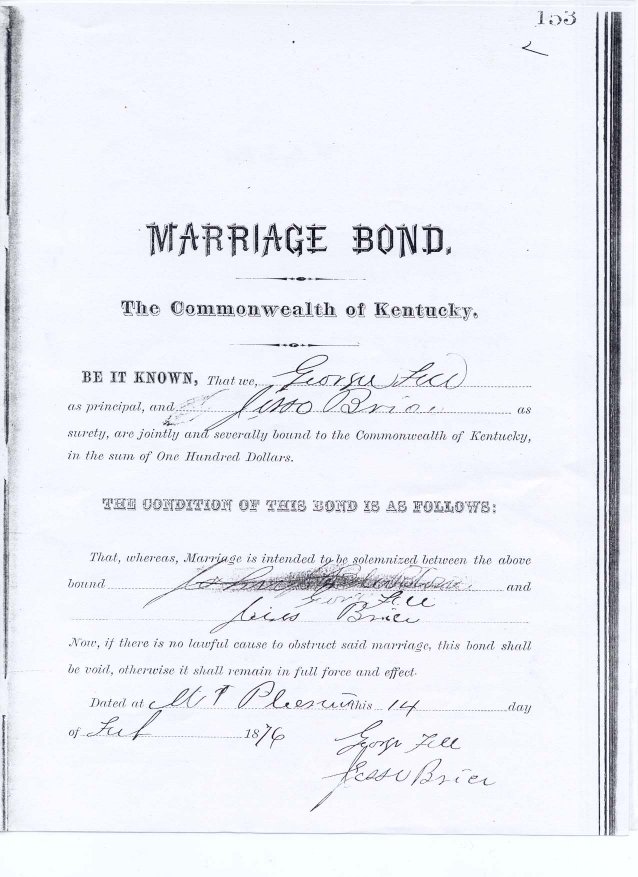 153
MARRIAGE BOND.
The Commonwealth of Kentucky.
BE IT KNOWN, That we, George Fell
as principal, and Jesse Brier as
surety, are jointly and severally bound to the Commonwealth of Kentucky,
in the sum of One Hundred Dollars.
THE CONDITION OF THIS BOND IS AS FOLLOWS:
That, whereas, Marriage is intended to be solemnized between the above
bound and
George Fell
Brier
Now, if there is no lawful cause to obstruct said marriage, this bond shall
be void, otherwise it shall remain in full force and effect.
Dated at Mt Pleasant this 14 day
of 1876
George Fell
Jesse Brier